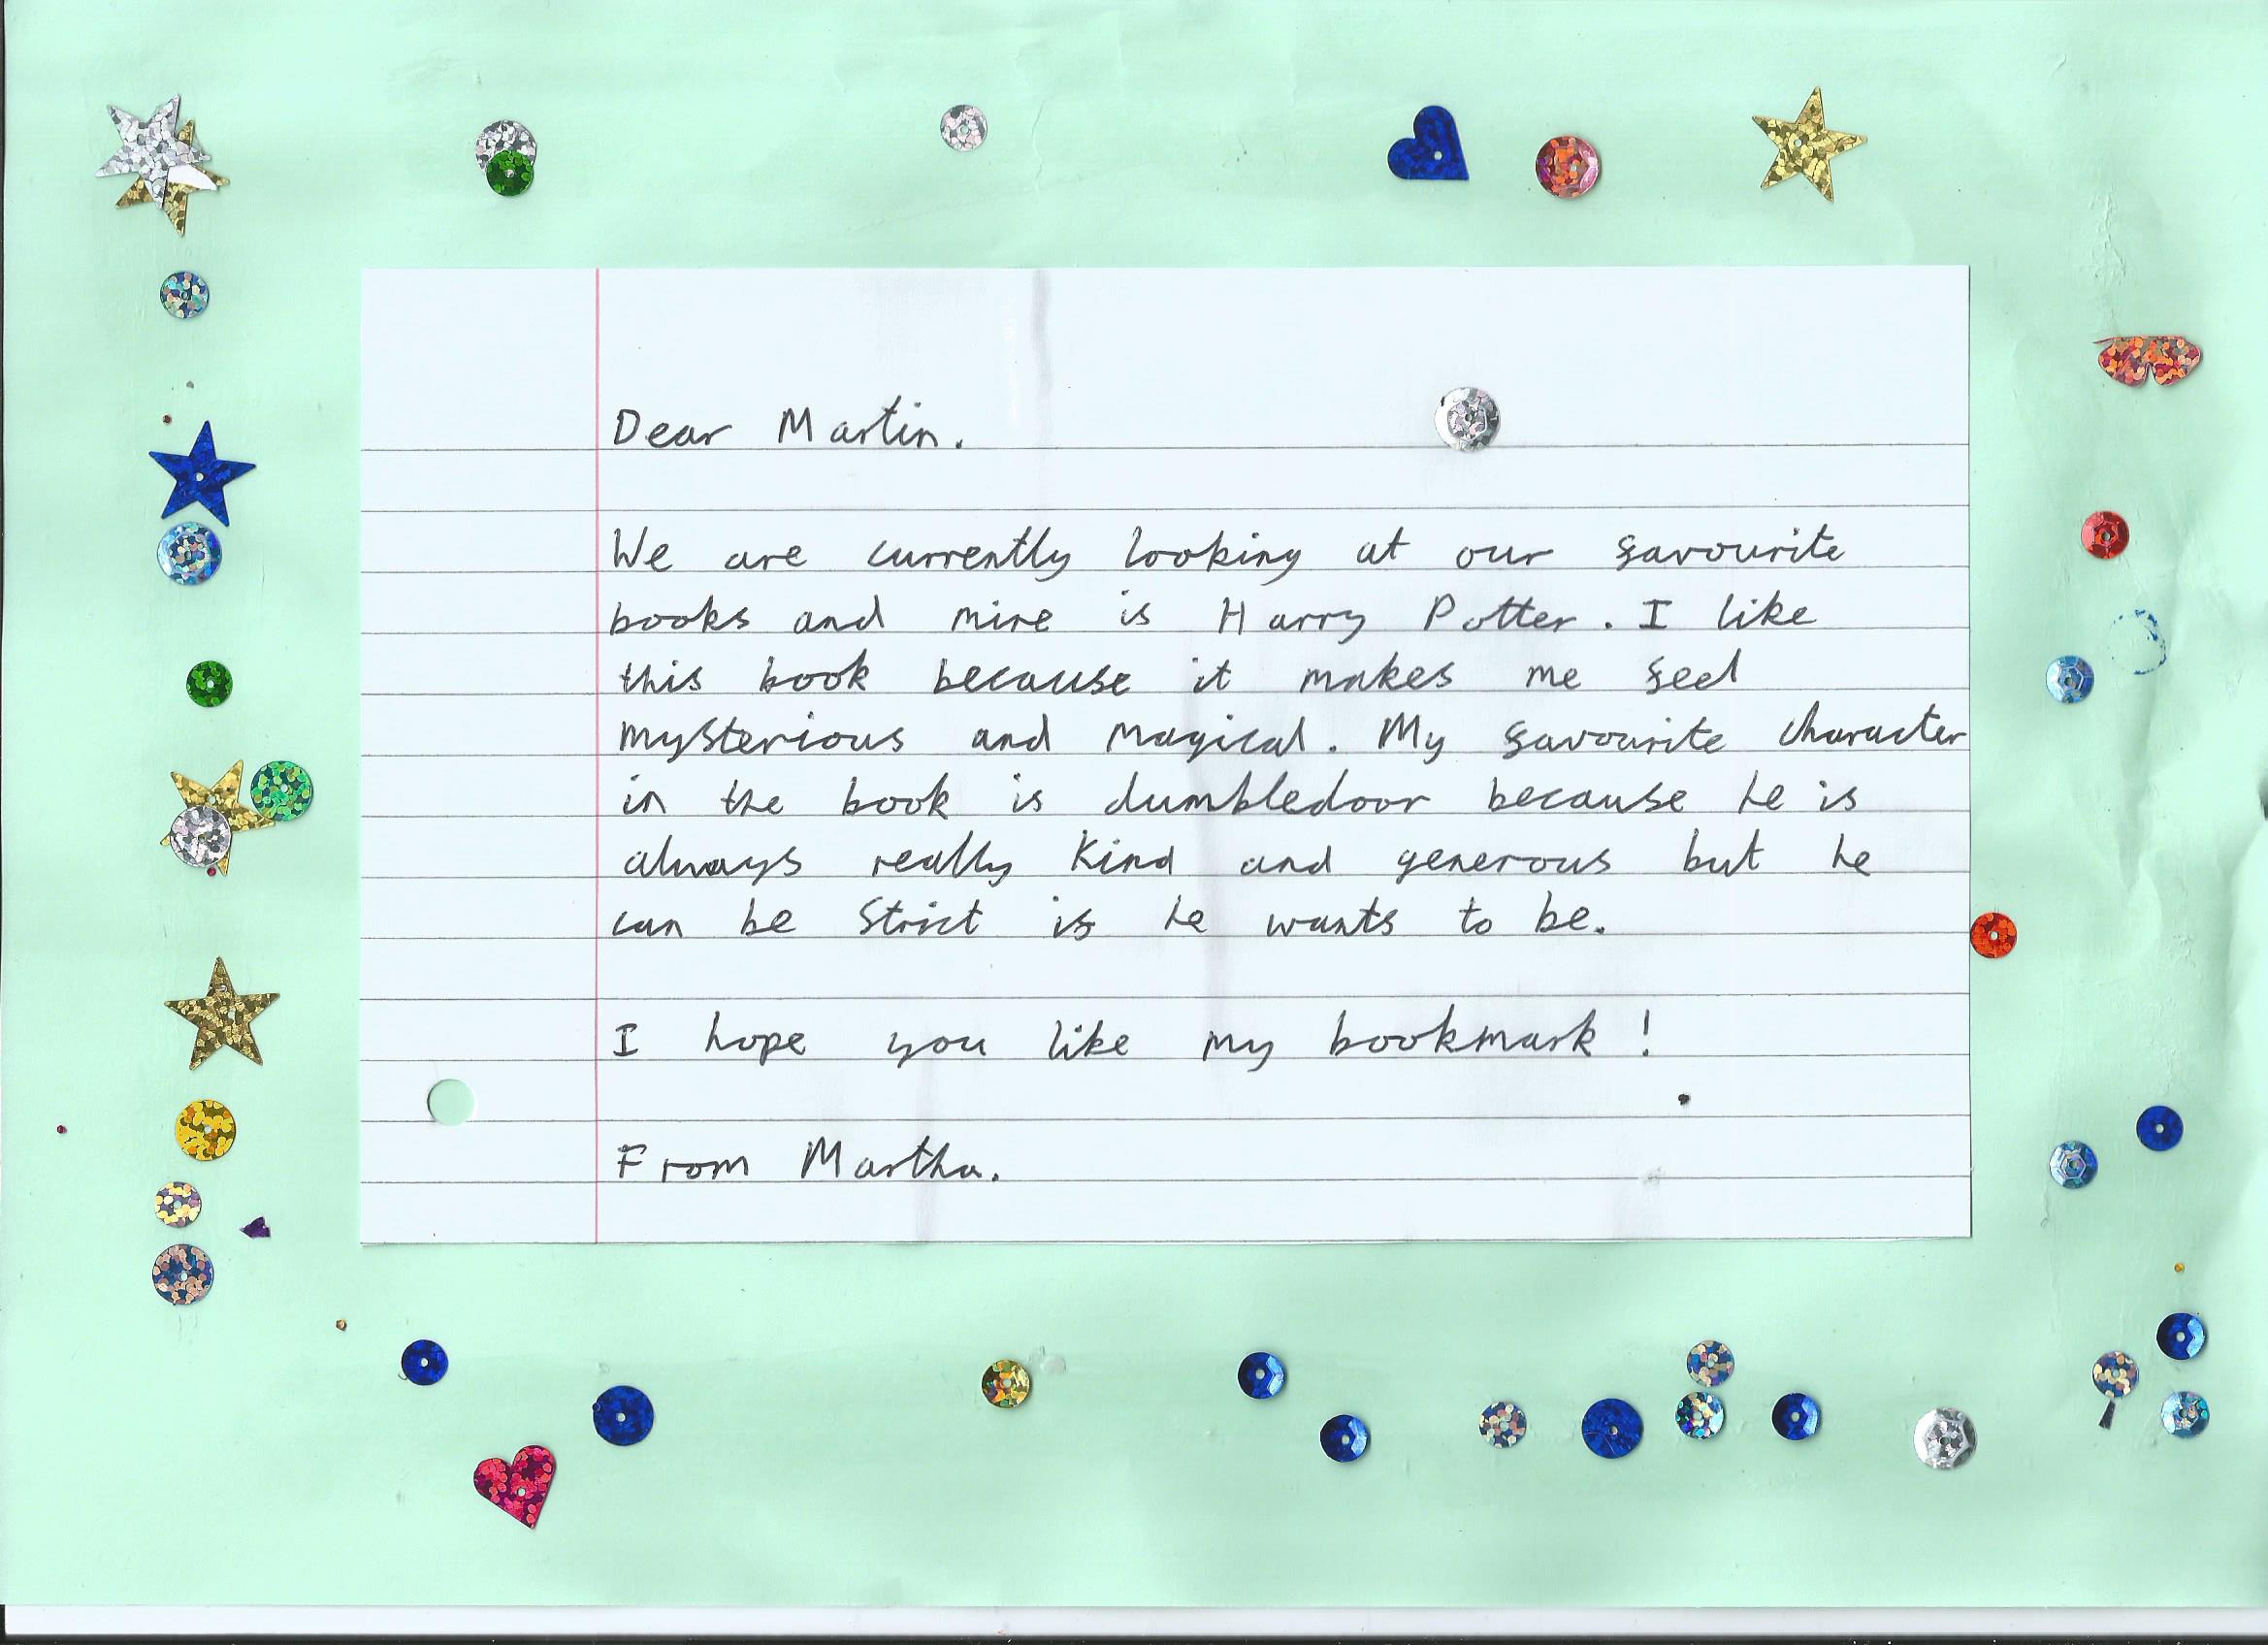 Dear Martin.
We are currently looking at our favourite
books and mine is Harry Potter. I like
this book because it makes me feel
mysterious and magical. My favourite character
in the book is dumbledoor because he is
always really kind and generous but he
can be strict if he wants to be.
I hope you like my bookmark!
From Martha.